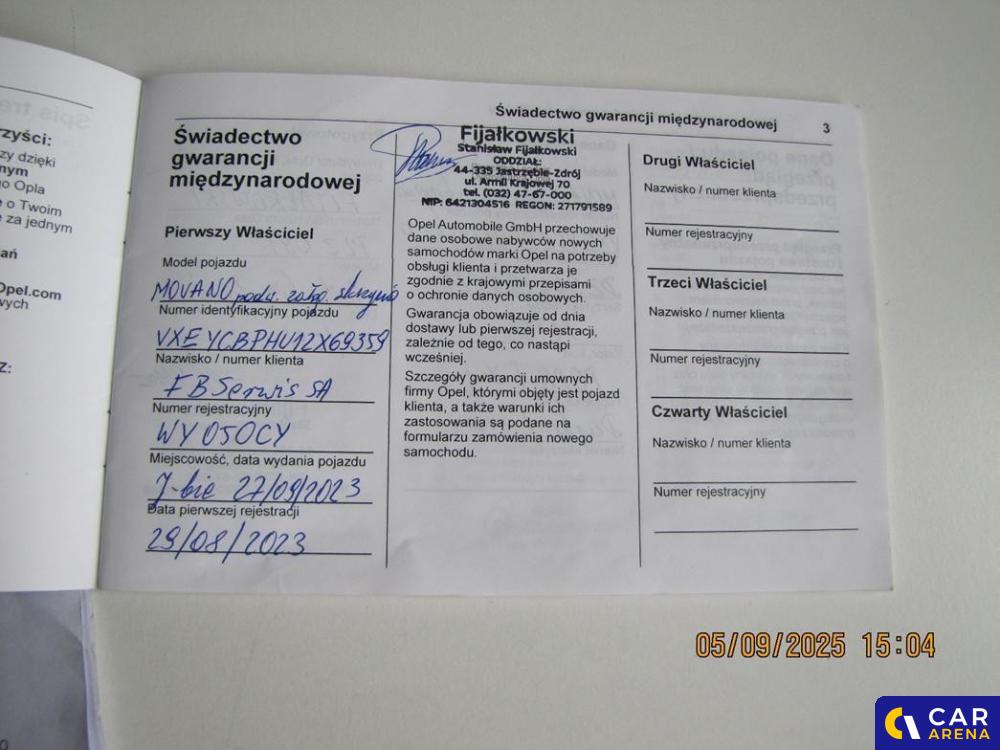 rzyści:
zy dzięki
nym
go Opla
e o Twoim
ę za jednym
Opel.com
Świadectwo gwarancji międzynarodowej 3
Świadectwo
gwarancji
międzynarodowej
Pierwszy Właściciel
Model pojazdu
MOVANO podw. załog. skrzynia
Numer identyfikacyjny pojazdu
VXEYCBPHU12X69359
Nazwisko / numer klienta
FB Serwis SA
Numer rejestracyjny
WY050CY
Miejscowość, data wydania pojazdu
J-bie 27/09/2023
Data pierwszej rejestracji
29/08/2023
Fijałkowski
Stanisław Fijałkowski
ODDZIAŁ:
44-335 Jastrzębie-Zdrój
ul. Armii Krajowej 70
tel. (032) 47-67-000
NIP: 6421304516 REGON: 271791589
Opel Automobile GmbH przechowuje
dane osobowe nabywców nowych
samochodów marki Opel na potrzeby
obsługi klienta i przetwarza je
zgodnie z krajowymi przepisami
o ochronie danych osobowych.
Gwarancja obowiązuje od dnia
dostawy lub pierwszej rejestracji,
zależnie od tego, co nastąpi
wcześniej.
Szczegóły gwarancji umownych
firmy Opel, którymi objęty jest pojazd
klienta, a także warunki ich
zastosowania są podane na
formularzu zamówienia nowego
samochodu.
Drugi Właściciel
Nazwisko / numer klienta
Numer rejestracyjny
Trzeci Właściciel
Nazwisko / numer klienta
Numer rejestracyjny
Czwarty Właściciel
Nazwisko / numer klienta
Numer rejestracyjny
05/09/2025 15:04
CAR
ARENA